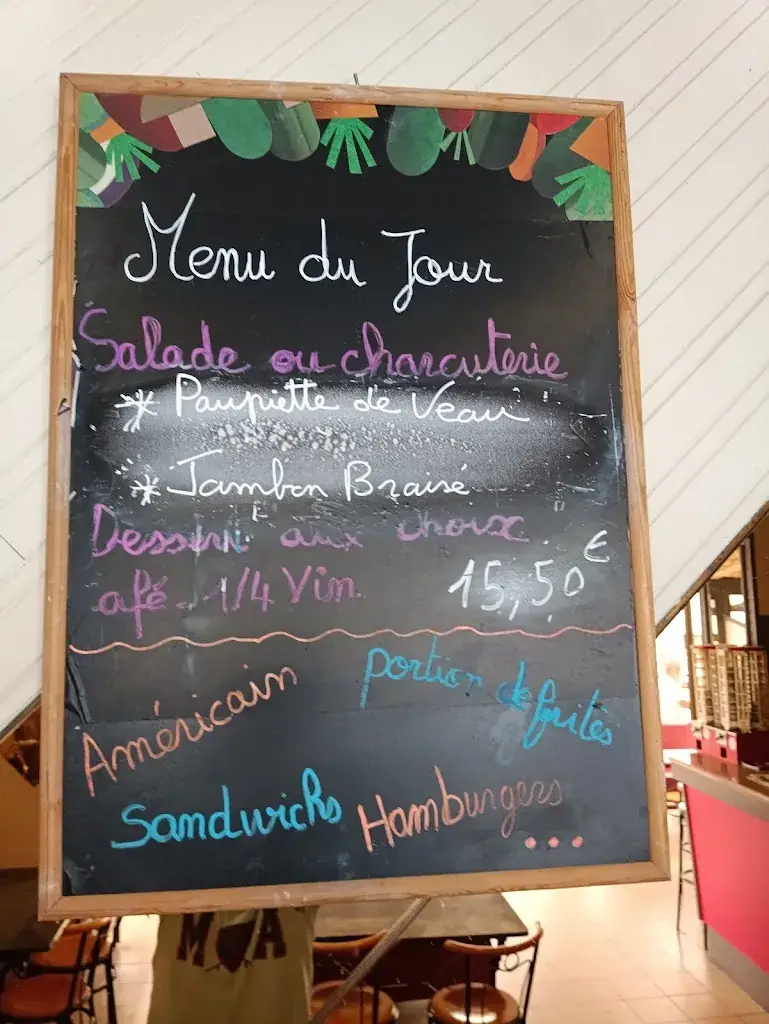 Menu du Jour
Salade ou charcuterie
* Paupiette de Veau
* Jambon Braisé
Dessert aux choix
afé 1/4 Vin 15,50 €
Américain
portion de frites
Sandwichs
Hamburgers
...
M A